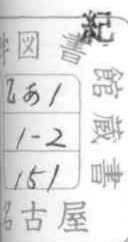 図書
館蔵書
あ1
1-2
151
古屋